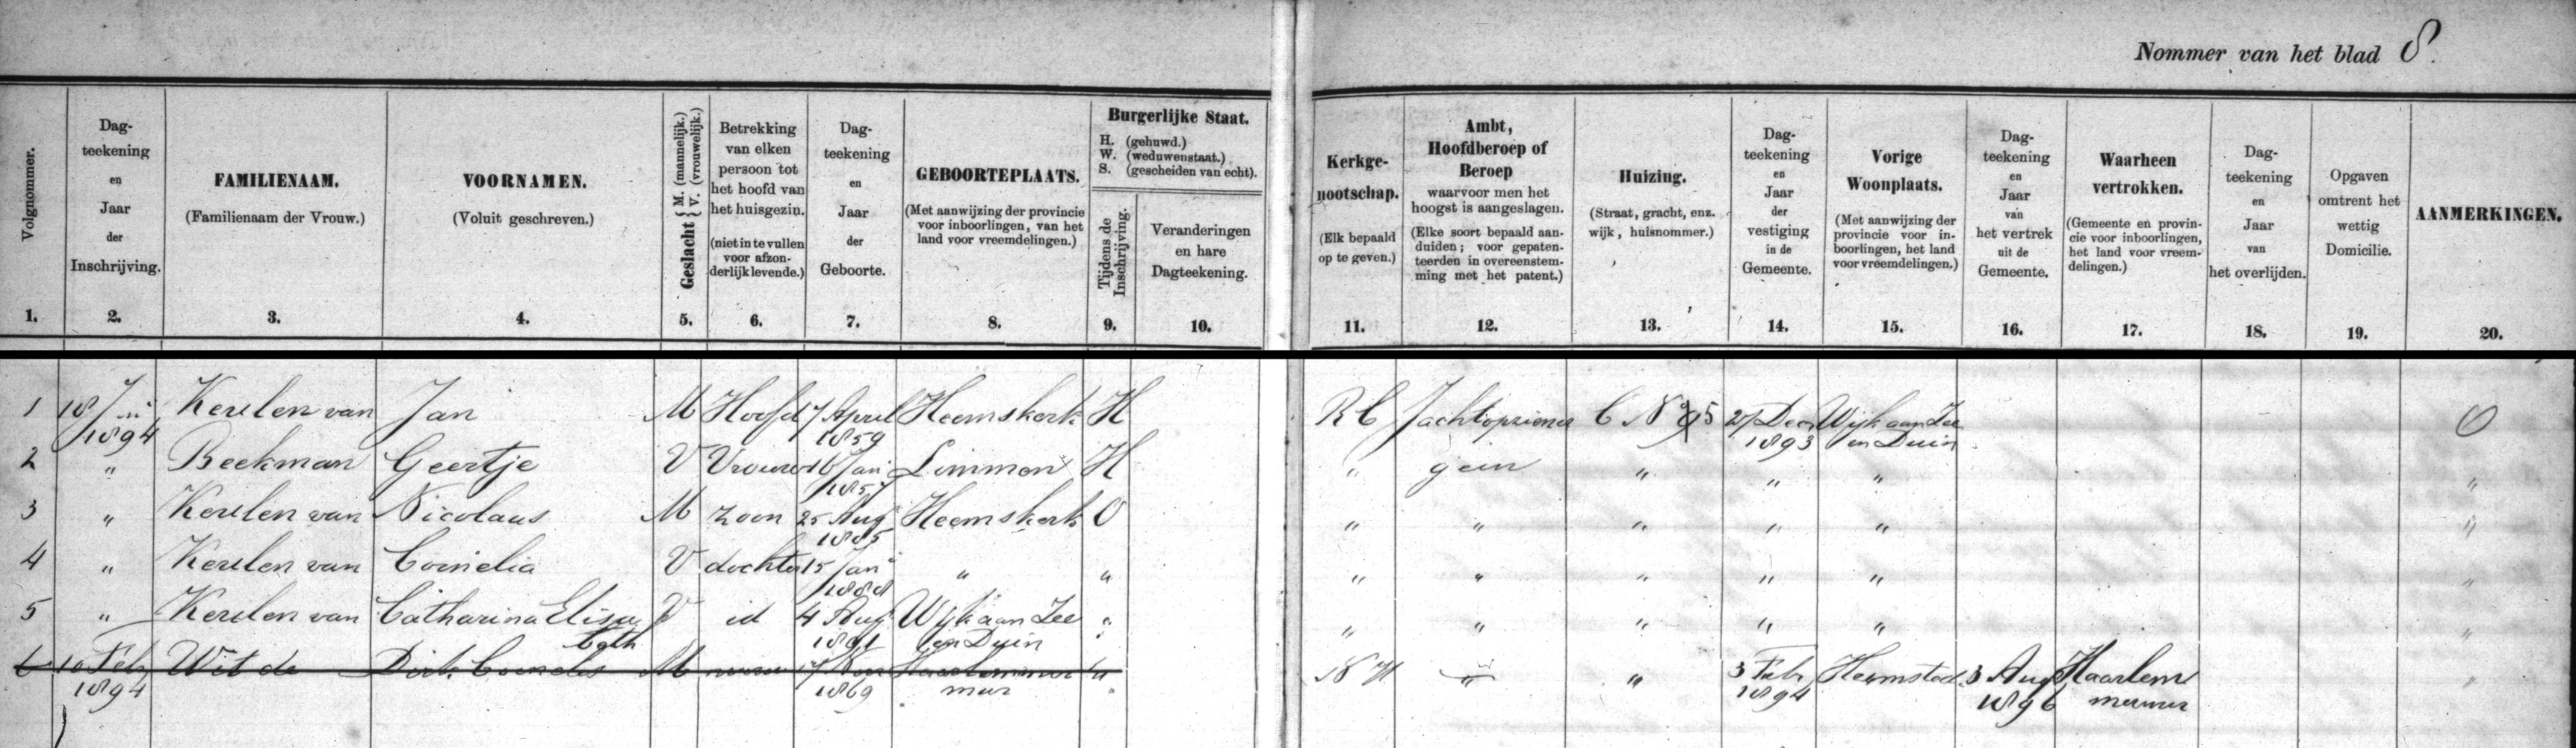 Nommer van het blad 8.
Volgnommer.
1.
Dag-
teekening
en
Jaar
der
Inschrijving.
2.
FAMILIENAAM.
(Familienaam der Vrouw.)
3.
VOORNAMEN.
(Voluit geschreven.)
4.
Geslacht { M. (mannelijk.) V. (vrouwelijk.)
5.
Betrekking
van elken
persoon tot
het hoofd van
het huisgezin.
(niet in te vullen
voor afzon-
derlijk levende.)
6.
Dag-
teekening
en
Jaar
der
Geboorte.
7.
GEBOORTEPLAATS.
(Met aanwijzing der provincie
voor inboorlingen, van het
land voor vreemdelingen.)
8.
Burgerlijke Staat.
H. (gehuwd.)
W. (weduwenstaat.)
S. (gescheiden van echt).
Tijdens de
Inschrijving.
9.
Veranderingen
en hare
Dagteekening.
10.
Kerkge-
nootschap.
(Elk bepaald
op te geven.)
11.
Ambt,
Hoofdberoep of
Beroep
waarvoor men het
hoogst is aangeslagen.
(Elke soort bepaald aan-
duiden; voor gepaten-
teerden in overeenstem-
ming met het patent.)
12.
Huizing.
(Straat, gracht, enz.
wijk, huisnommer.)
13.
Dag-
teekening
en
Jaar
der
vestiging
in de
Gemeente.
14.
Vorige
Woonplaats.
(Met aanwijzing der
provincie voor in-
boorlingen, het land
voor vreemdelingen.)
15.
Dag-
teekening
en
Jaar
van
het vertrek
uit de
Gemeente.
16.
Waarheen
vertrokken.
(Gemeente en provin-
cie voor inboorlingen,
het land voor vreem-
delingen.)
17.
Dag-
teekening
en
Jaar
van
het overlijden.
18.
Opgaven
omtrent het
wettig
Domicilie.
19.
AANMERKINGEN.
20.
1 18 1894 Keulen van Jan M Hoofd 7 April 1859 Heemskerk H R C Jachtopziener C No 5 27 Dec 1893 Wijk aan Zee en Duin
2 " Beekman Geertje V Vrouw 16 Jan 1857 Limmen H " geen " " " "
3 " Keulen van Nicolaus M zoon 25 Aug 1885 Heemskerk O " " " " " "
4 " Keulen van Cornelia V dochter 15 Jan 1888 " " " " " " " "
5 " Keulen van Catharina Elisabeth V id 4 Aug 1891 Wijk aan Zee en Duin " " " " " " "
6 10 Feb 1894 Wit de Dirk Cornelis M 1869 Haarlemmermeer " N H " " 3 Feb 1894 Heemstede 3 Aug 1896 Haarlemmermeer "